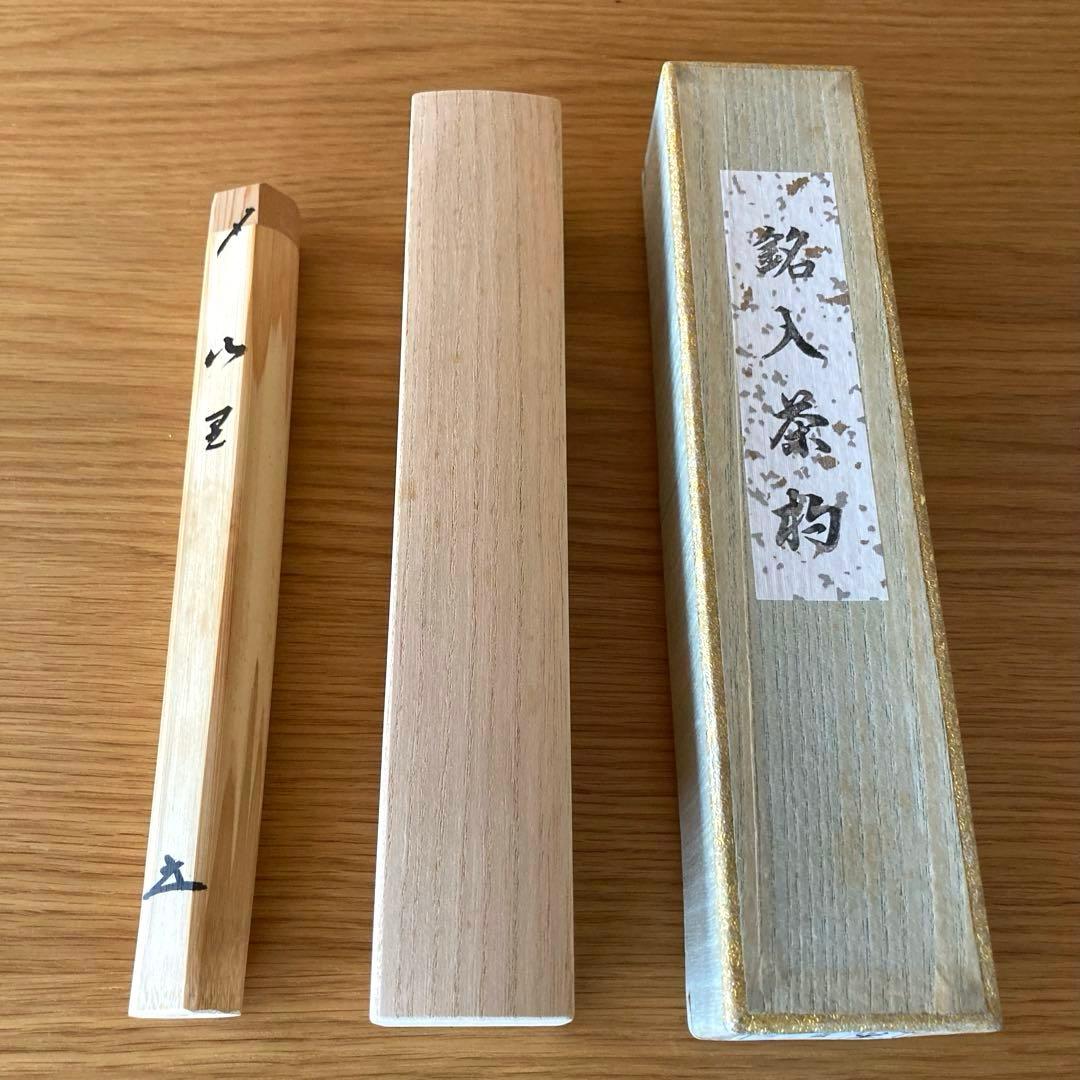 銘入茶杓
〆
山里